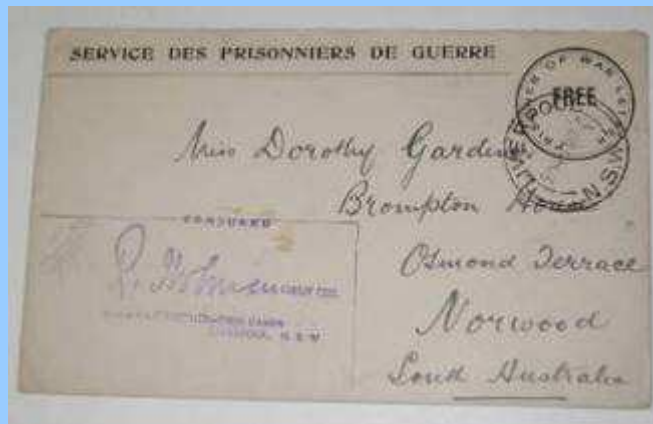 SERVICE DES PRISONNIERS DE GUERRE
PRISONER OF WAR LETTER
FREE
LIVERPOOL N.S.W
Miss Dorothy Gardiner
Brompton House
Osmond Terrace
Norwood
South Australia
CENSORED
LIVERPOOL, N.S.W